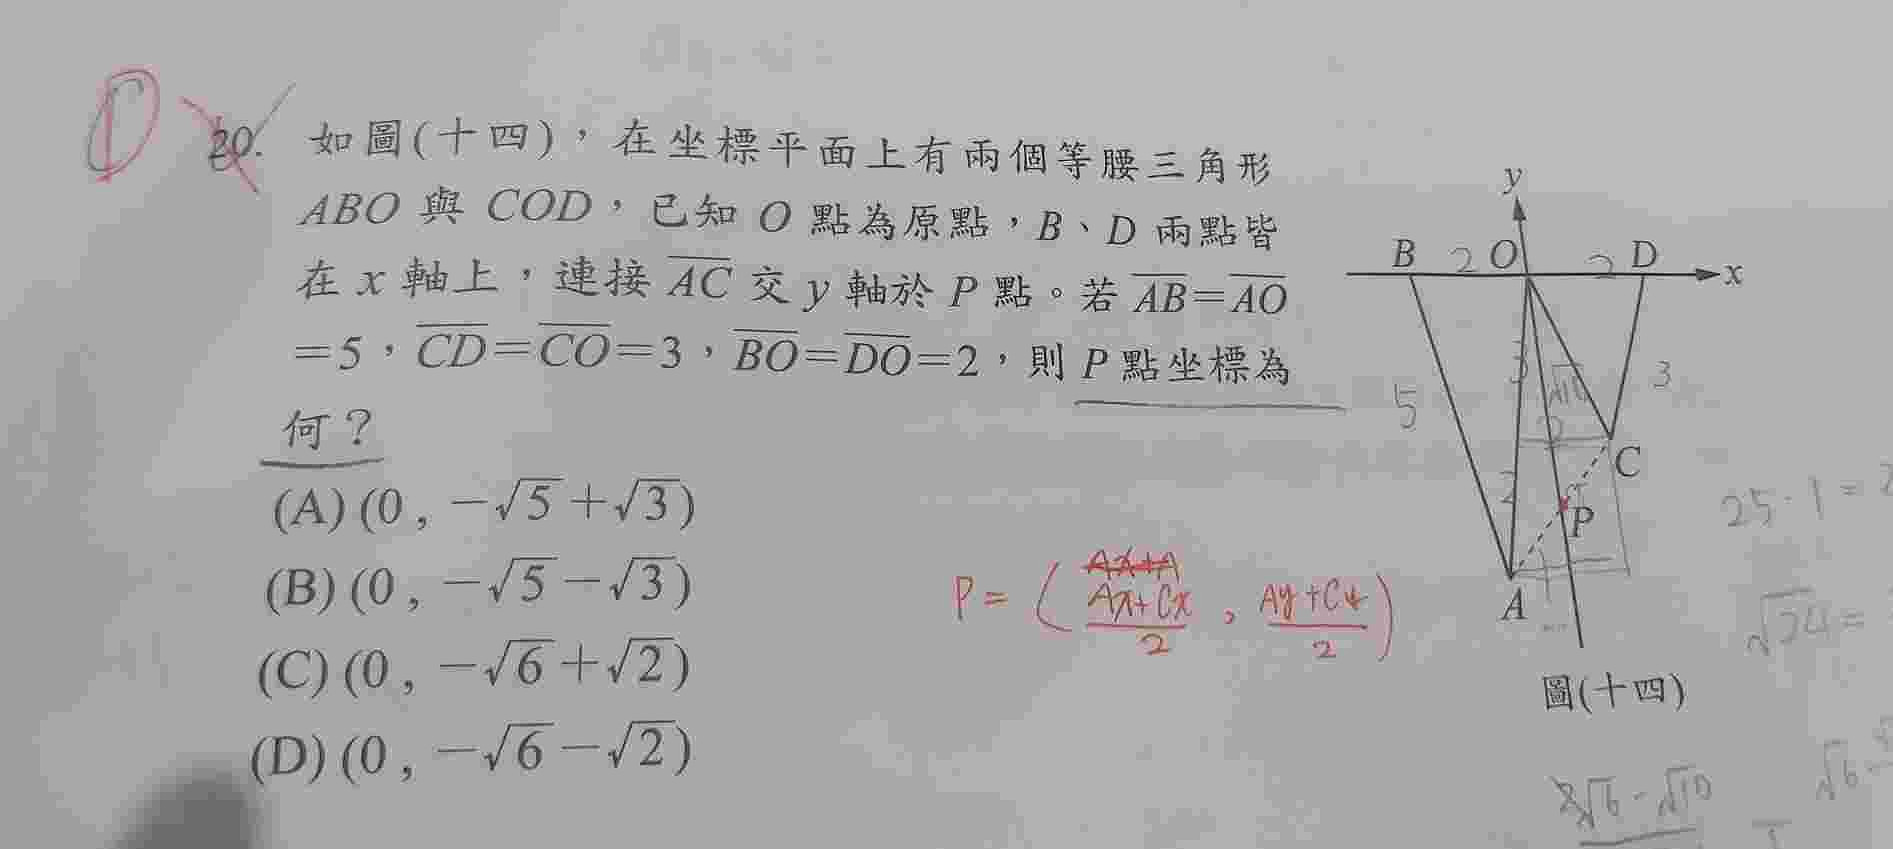 D
20. 如圖(十四)，在坐標平面上有兩個等腰三角形
ABO 與 COD，已知 O 點為原點，B、D 兩點皆
在 x 軸上，連接 AC 交 y 軸於 P 點。若 AB=AO
=5，CD=CO=3，BO=DO=2，則 P 點坐標為
何？
(A) (0, -√5+√3)
(B) (0, -√5-√3)
(C) (0, -√6+√2)
(D) (0, -√6-√2)
P = ( (Ax+Cx)/2 , (Ay+Cy)/2 )
y
B 2 O 2 D x
5 3 √10 3
2 C
P
A
圖(十四)
25-1=2
√24=
2√6-√10
√6-